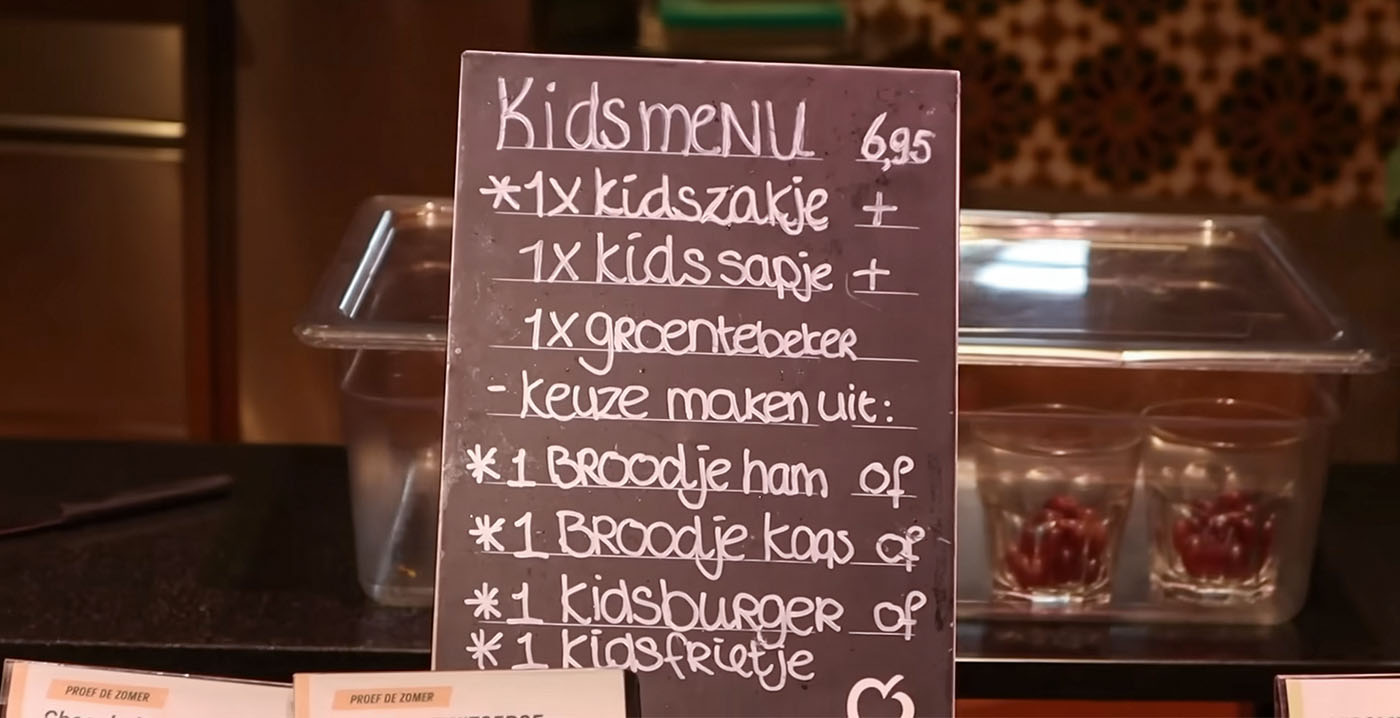 KidsmeNU 6,95
*1x kidszakje +
1x kidssapje +
1x groentebeker
- keuze maken uit:
*1 BROodje ham of
*1 BROodje kaas of
*1 kidsburger of
*1 kidsfrietje
PROEF DE ZOMER
PROEF DE ZOMER